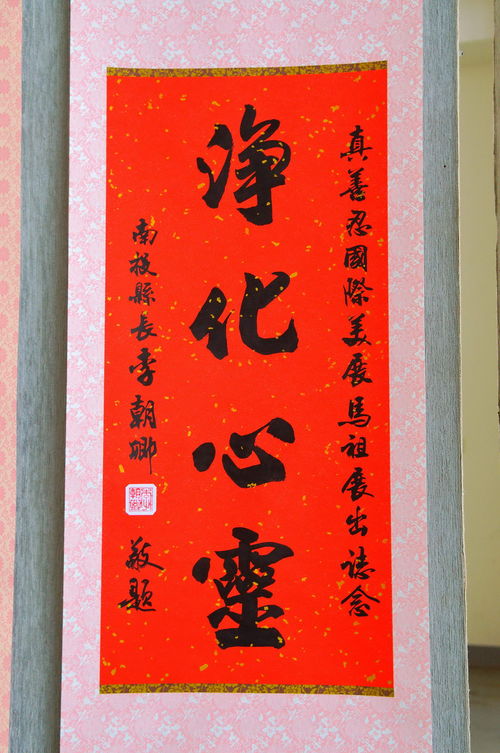 真善忍國際美展馬祖展出誌念
淨化心靈
南投縣長李朝卿
敬題